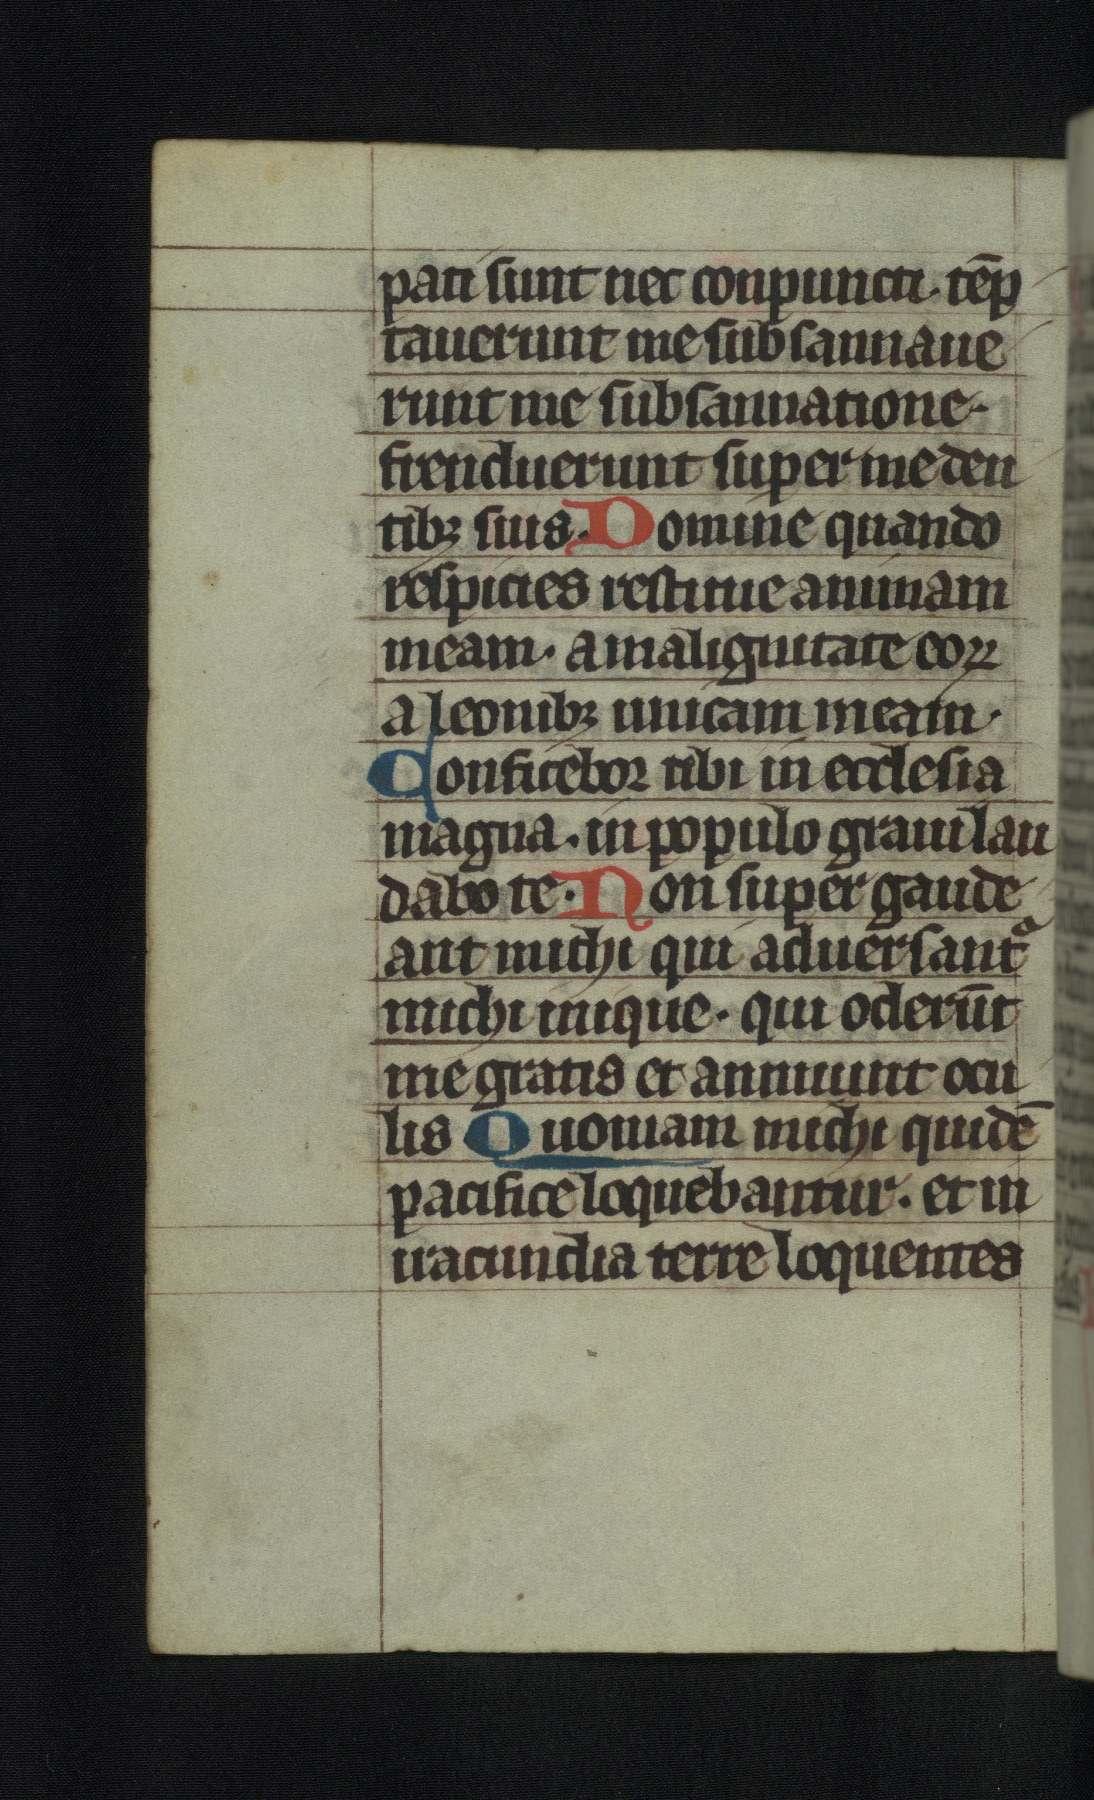 pati sunt nec conpuncti. te̅p
tauerunt me subsannaue
runt me subsannatione.
frenduerunt super me den
tibꝫ suis. Domine quando
respicies restitue animam
meam. a malignitate eoꝝ
a leonibꝫ unicam meam.
Confitebor tibi in ecclesia
magna. in populo graui lau
dabo te. Non super gaude
ant michi qui aduersant᷑
michi inique. qui oderu̅t
me gratis et annuunt ocu
lis Quoniam michi quide̅
pacifice loquebantur. et in
iracundia terre loquentes